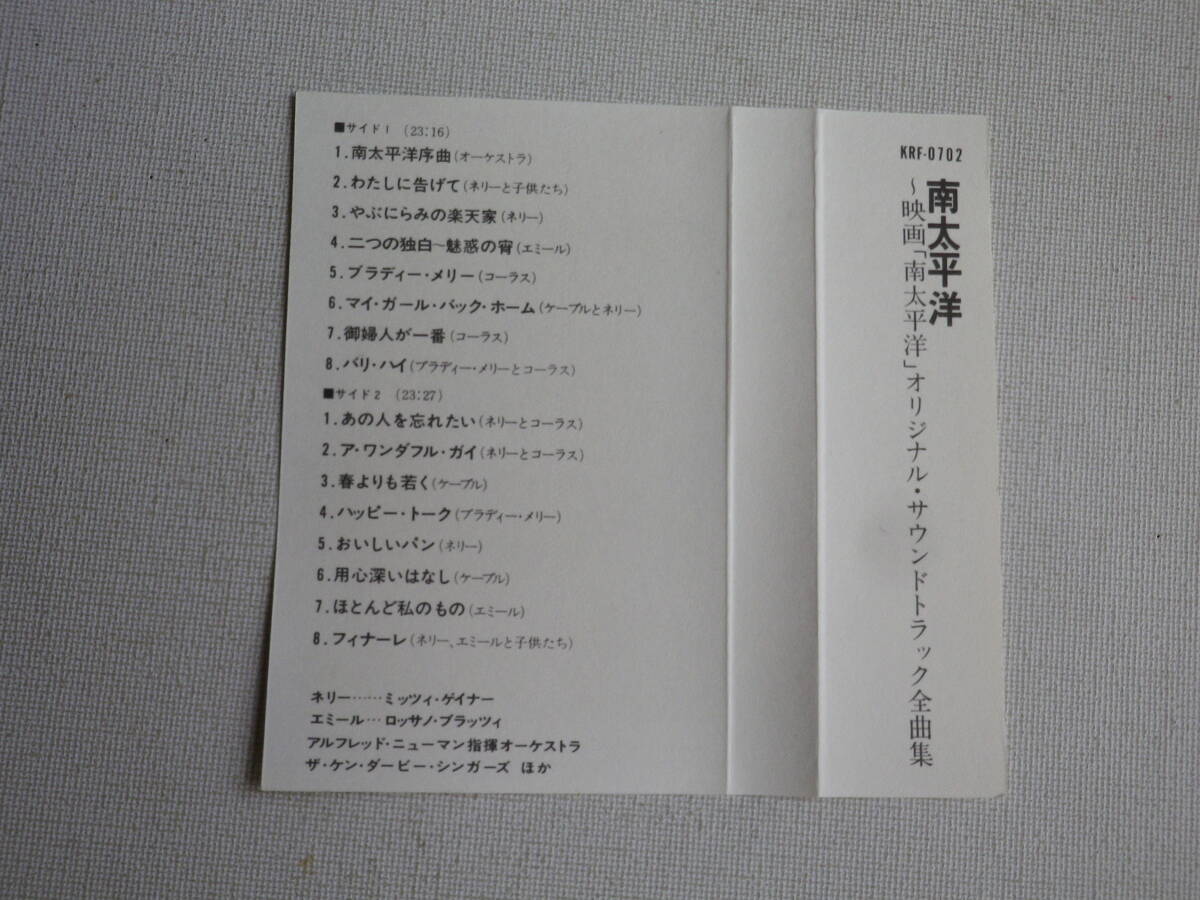 ■サイド1 (23:16)
1.南太平洋序曲(オーケストラ)
2.わたしに告げて(ネリーと子供たち)
3.やぶにらみの楽天家(ネリー)
4.二つの独白〜魅惑の宵(エミール)
5.ブラディー・メリー(コーラス)
6.マイ・ガール・バック・ホーム(ケーブルとネリー)
7.御婦人が一番(コーラス)
8.バリ・ハイ(ブラディー・メリーとコーラス)
■サイド2 (23:27)
1.あの人を忘れたい(ネリーとコーラス)
2.ア・ワンダフル・ガイ(ネリーとコーラス)
3.春よりも若く(ケーブル)
4.ハッピー・トーク(ブラディー・メリー)
5.おいしいパン(ネリー)
6.用心深いはなし(ケーブル)
7.ほとんど私のもの(エミール)
8.フィナーレ(ネリー、エミールと子供たち)
ネリー……ミッツィ・ゲイナー
エミール…ロッサノ・ブラッツィ
アルフレッド・ニューマン指揮オーケストラ
ザ・ケン・ダービー・シンガーズ ほか
KRF-0702
南太平洋
〜映画「南太平洋」オリジナル・サウンドトラック全曲集